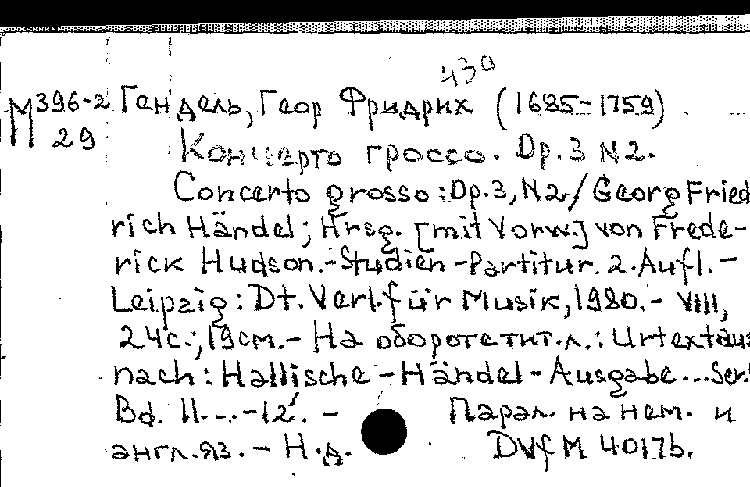 430
М 396-2 Гендель, Геор Фридрих (1685-1759)
29
Концерто гроссо. Op. 3 N2.
Concerto grosso: Op. 3, N2 / Georg Fried
rich Händel; Hrsg. [mit Vorw.] von Frede-
rick Hudson.-Studien-Partitur. 2. Aufl. -
Leipzig: Dt. Verl. für Musik, 1980. - VIII,
24с.; 19см. - На обороте тит.л.: Urtextaus
nach: Hallische-Händel-Ausgabe... Ser.
Bd. 11...-12'. - Парал. на нем. и
англ.яз. - Н.д. DVfM 4017b.